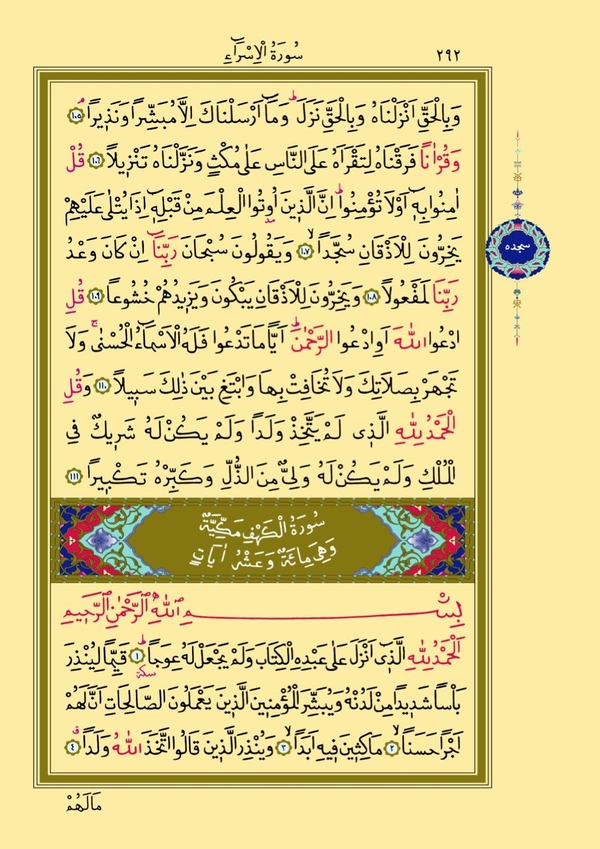 سُورَةُ الْاِسْرَٓاءِ ٢٩٢
وَبِالْحَقِّ اَنْزَلْنَاهُ وَبِالْحَقِّ نَزَلَۜ وَمَٓا اَرْسَلْنَاكَ اِلَّا مُبَشِّرًا وَنَذٖيرًاۢ ﴿١٠٥﴾
وَقُرْاٰنًا فَرَقْنَاهُ لِتَقْرَاَهُ عَلَى النَّاسِ عَلٰى مُكْثٍ وَنَزَّلْنَاهُ تَنْزٖيلًا ﴿١٠٦﴾ قُلْ
اٰمِنُوا بِهٖٓ اَوْ لَا تُؤْمِنُواۜ اِنَّ الَّذٖينَ اُو۫تُوا الْعِلْمَ مِنْ قَبْلِهٖٓ اِذَا يُتْلٰى عَلَيْهِمْ
يَخِرُّونَ لِلْاَذْقَانِ سُجَّدًاۙ ﴿١٠٧﴾ وَيَقُولُونَ سُبْحَانَ رَبِّنَٓا اِنْ كَانَ وَعْدُ
سجده
رَبِّنَا لَمَفْعُولًا ﴿١٠٨﴾ وَيَخِرُّونَ لِلْاَذْقَانِ يَبْكُونَ وَيَزٖيدُهُمْ خُشُوعًا ﴿١٠٩﴾ قُلِ
ادْعُوا اللّٰهَ اَوِ ادْعُوا الرَّحْمٰنَۜ اَيًّا مَا تَدْعُوا فَلَهُ الْاَسْمَٓاءُ الْحُسْنٰىۚ وَلَا
تَجْهَرْ بِصَلَاتِكَ وَلَا تُخَافِتْ بِهَا وَابْتَغِ بَيْنَ ذٰلِكَ سَبٖيلًا ﴿١١٠﴾ وَقُلِ
الْحَمْدُ لِلّٰهِ الَّذٖي لَمْ يَتَّخِذْ وَلَدًا وَلَمْ يَكُنْ لَهُ شَرٖيكٌ فِي
الْمُلْكِ وَلَمْ يَكُنْ لَهُ وَلِيٌّ مِنَ الذُّلِّ وَكَبِّرْهُ تَكْبٖيرًا ﴿١١١﴾
سُورَةُ الْكَهْفِ مَكِّيَّةٌ
وَهِيَ مِائَةٌ وَعَشْرُ اٰيَاتٍ
بِسْمِ اللّٰهِ الرَّحْمٰنِ الرَّحٖيمِ
اَلْحَمْدُ لِلّٰهِ الَّذٖٓي اَنْزَلَ عَلٰى عَبْدِهِ الْكِتَابَ وَلَمْ يَجْعَلْ لَهُ عِوَجًاۜ ﴿١﴾ سكته قَيِّمًا لِيُنْذِرَ
بَاْسًا شَدٖيدًا مِنْ لَدُنْهُ وَيُبَشِّرَ الْمُؤْمِنٖينَ الَّذٖينَ يَعْمَلُونَ الصَّالِحَاتِ اَنَّ لَهُمْ
اَجْرًا حَسَنًاۙ ﴿٢﴾ مَاكِثٖينَ فٖيهِ اَبَدًاۙ ﴿٣﴾ وَيُنْذِرَ الَّذٖينَ قَالُوا اتَّخَذَ اللّٰهُ وَلَدًاۗ ﴿٤﴾
مَا لَهُمْ